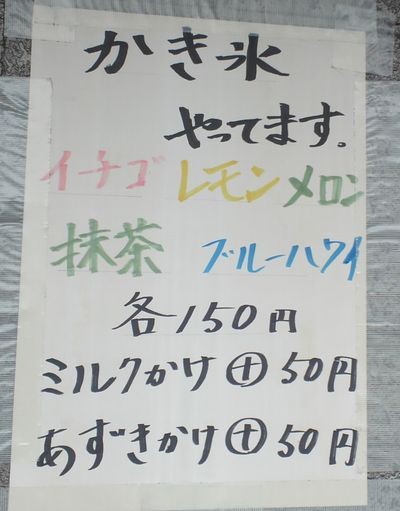 かき氷
やってます。
イチゴ レモン メロン
抹茶 ブルーハワイ
各150円
ミルクかけ⊕50円
あずきかけ⊕50円